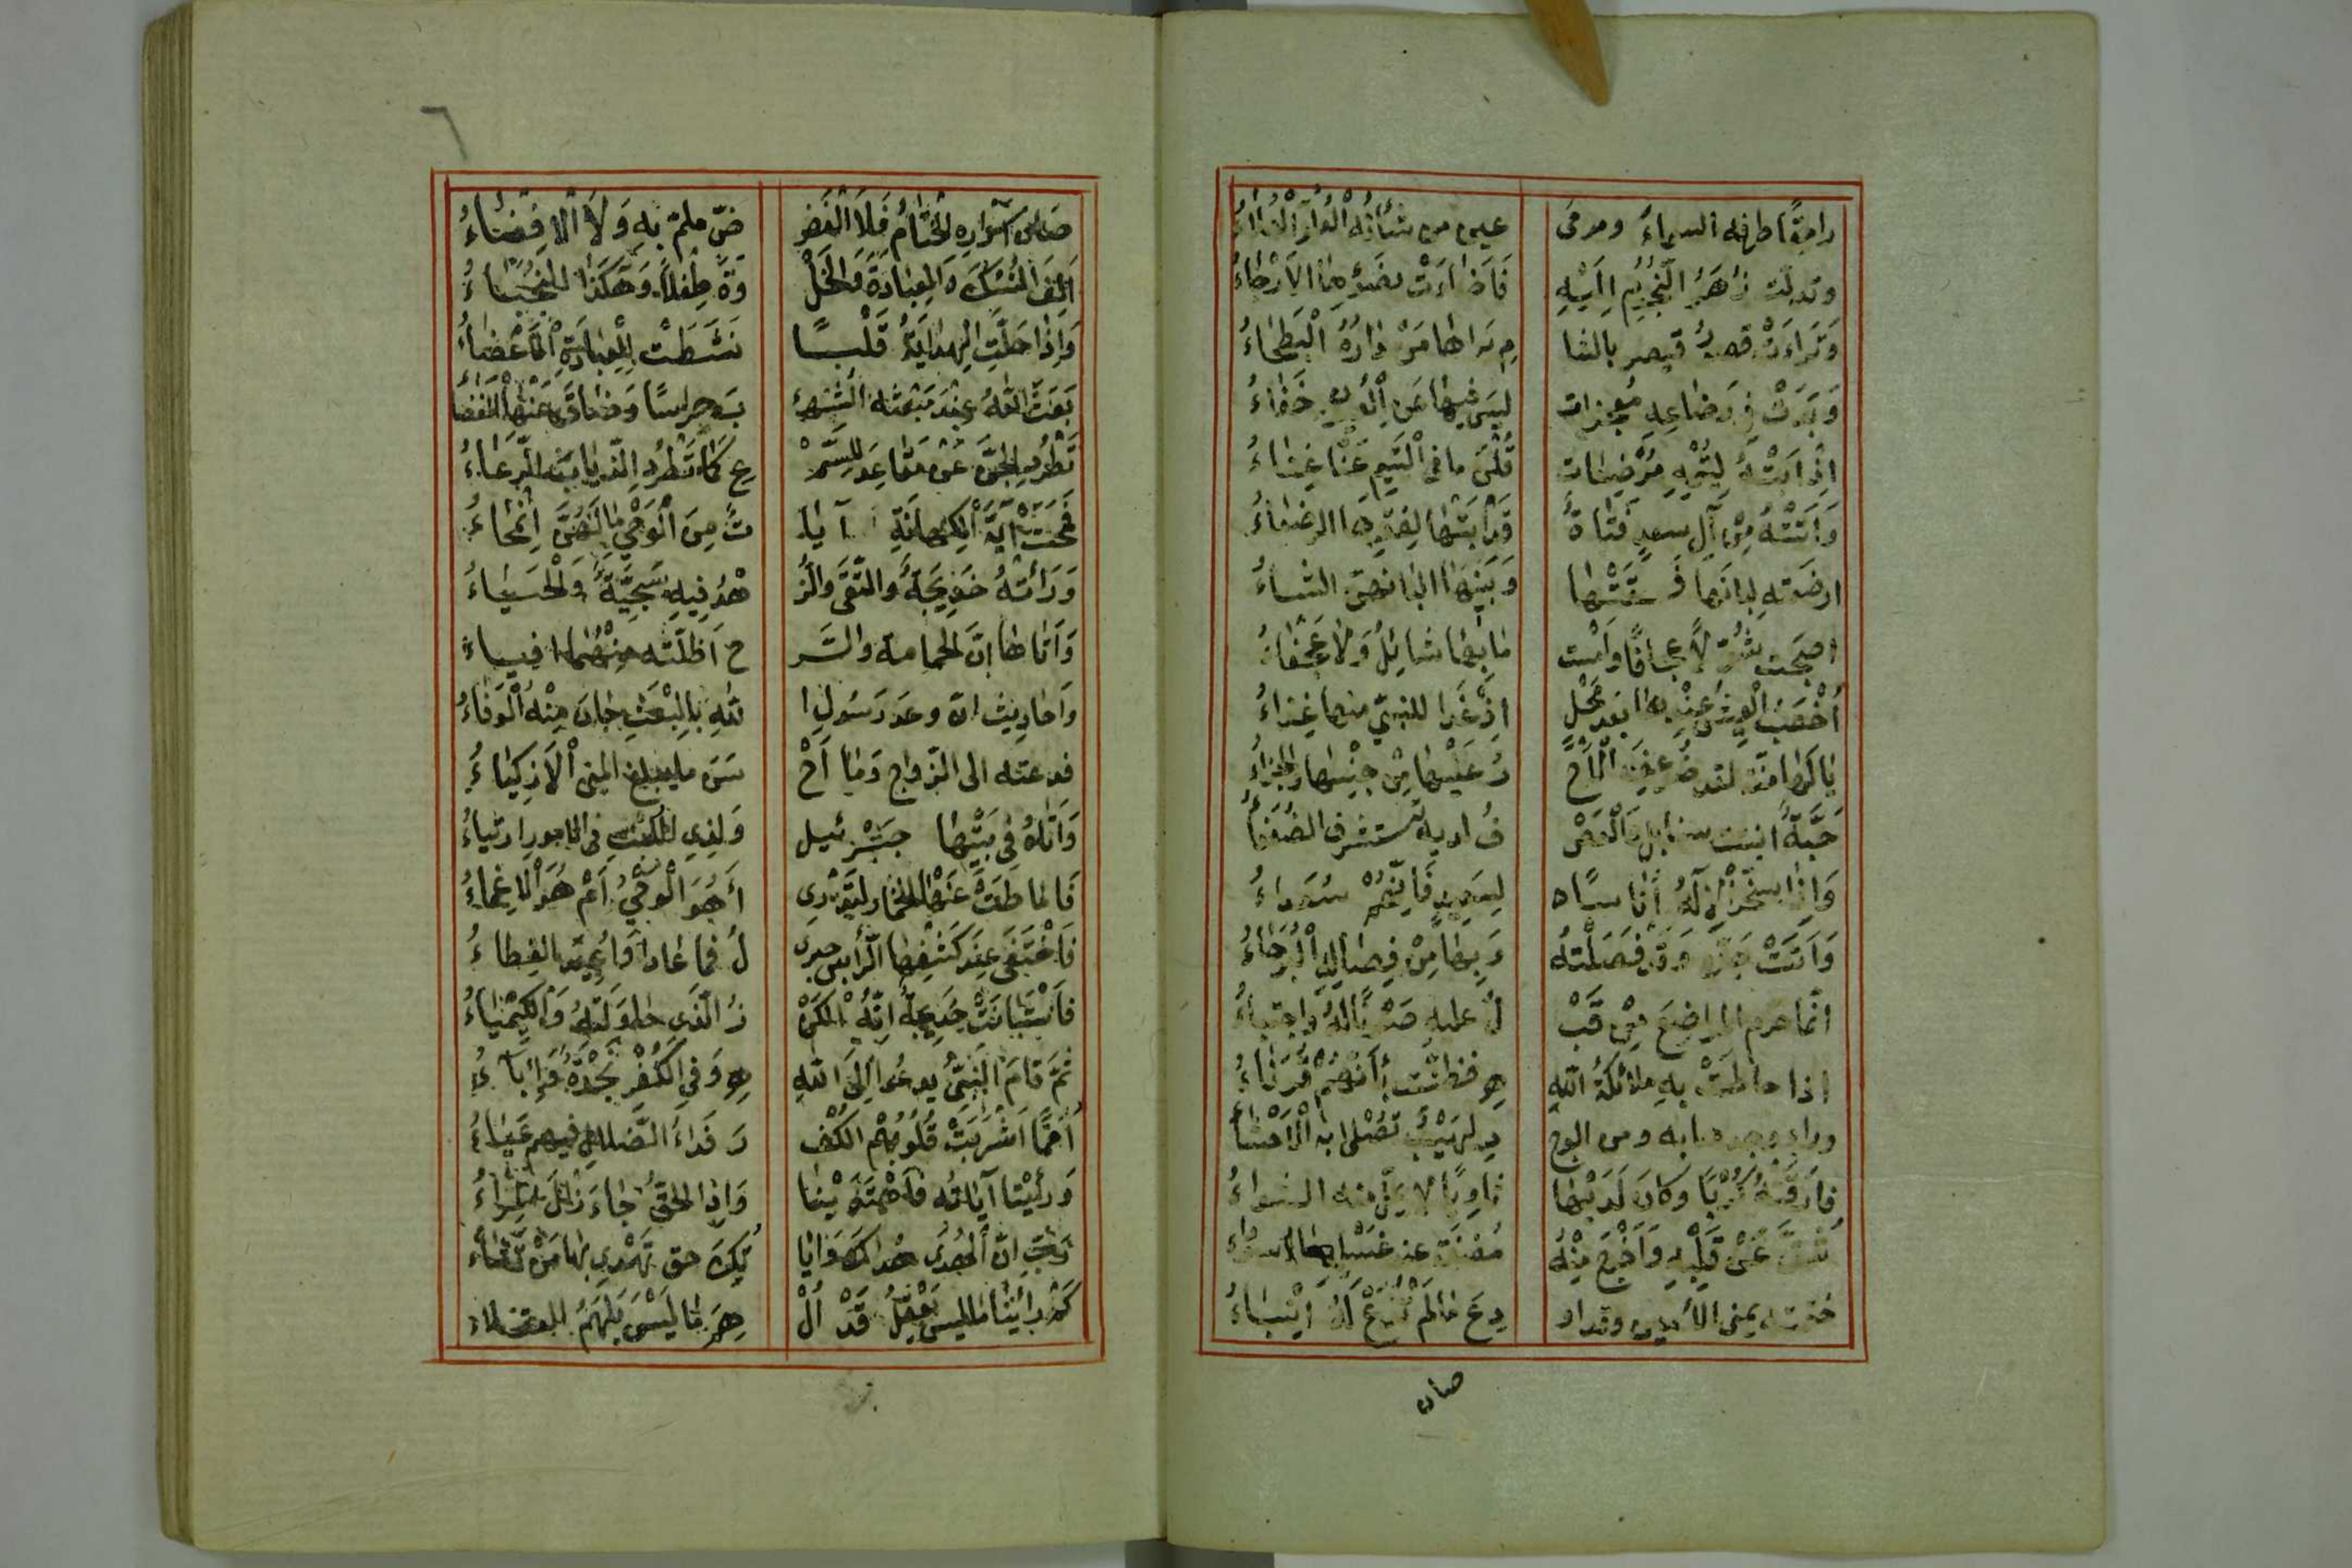 رامقًا طرفه السماءَ ومرمى عين من شأنُهُ الْعُلُوُّ الْعَلَاءُ
وتدلّت زُهَرُ النُّجُومِ إِلَيْهِ فَأَضَاءَتْ بِضَوْئِهَا الْأَرْجَاءُ
وَتَرَاءَتْ قصورُ قيصر بالشا مِ يَرَاهَا مَنْ دَارُهُ الْبَطْحَاءُ
وَبَدَتْ فِي رَضَاعِهِ مُعْجِزات لَيْسَ فِيهَا عَنِ الْعُيُونِ خَفَاءُ
إِذْ أَبَتْهُ لِيُتْمِهِ مُرْضِعَات قُلْنَ مَا فِي الْيَتِيمِ عَنَّا غَنَاءُ
وَأَتَتْهُ مِنْ آلِ سعدٍ فَتَاةٌ قَدْ أَبَتْهَا لِفَقْرِهَا الرضعاءُ
ارضعته لِبَانَهَا فَسَقَتْهَا وَبَنِيهَا الْبَانَهنّ الشاءُ
اصبحت شُوَّلًا عجافًا وَأمست مَا بِهَا شَائِلٌ وَلَا عَجْفَاءُ
أَخْصَبَ الْعَيْشُ عِنْدَهَا بَعْدَ مَحْلٍ إِذْ غَدَا لِلنَّبِيِّ منها غِذَاءُ
يَا لَهَا مِنَّةً لقد ضُوعِفَ الْأَجْ رُ عَلَيْهَا مِنْ جِنْسِهَا وَالْجَزَاءُ
حَبَّةٌ انبتت سنابل وَالْعَصْ فُ لديه يستشرف الضُّعَفَاءُ
وَإِذَا سَخَّرَ الْإِلَهُ أُنَاسًا لِسَعِيدٍ فَإِنَّهُمْ سُعَدَاءُ
وَأَتَتْ جَدَّهُ وَقَدْ فَصَلَتْهُ وَبِهَا مِنْ فِصَالِهِ الْبُرَحَاءُ
إذا حاطَتْ بِهِ مَلَائِكَةُ اللّهِ هِ فظنّت بِأَنَّهُمْ قُرَنَاءُ
ورأى وجدها به ومن الوج دِ لَهِيبٌ تَصْلَى بِهِ الْأَحْشَاءُ
فَارَقَتْهُ كُرْهًا وَكَانَ لَدَيْهَا ثَاوِيًا لَا يُمَلُّ منه الثواءُ
شُقَّ عَنْ قَلْبِهِ وَأُخْرِجَ مِنْهُ مُضْغَةٌ عند غسلها سوداء
ختمته يمنى الأمين وقد او دِعَ مَا لَمْ تُذَعْ لَهُ أَنْبَاءُ
صان
٦
صَانَ أَسْرَارَهُ الْخِتَامُ فَلَا الْفَضّ ضُّ ملمّ بِهِ وَلَا الْإِفْضَاءُ
أَلِفَ النُّسْكَ وَالْعِبَادَةَ وَالْخَلْ وَةَ طِفْلًا وَهَكَذَا النُّجَبَاءُ
وَإِذَا حَلَّتِ الْهِدَايَةُ قَلْبًا نَشَطَتْ لِلْعِبَادَةِ الْأَعْضَاءُ
بَعَثَ اللَّهُ عِنْدَ مَبْعَثِهِ الشُّهْ بَ حِرَاسًا وَضَاقَ عَنْهَا الْفَضَاءُ
تَطْرُدُ الْجِنَّ عَنْ مَقَاعِدَ لِلسَّمْ عِ كَمَا تَطْرُدُ الذِّئَابَ الرِّعَاءُ
فَمَحَتْ آيَةَ الْكِهَانَةِ آيَا تٌ مِنَ الْوَحْيِ مَا لَهُنَّ انْمِحَاءُ
وَرَأَتْهُ خَدِيجَةٌ وَالتُّقَى وَالزُّ هْدُ فِيهِ سَجِيَّةٌ وَالْحَيَاءُ
وَأَتَاهَا أَنَّ الْغَمَامَةَ وَالسَّر حَ أَظَلَّتْهُ مِنْهُمَا افياءُ
وَأَحَادِيثُ أَنَّ وَعْدَ رَسُولِ ا للهِ بِالْبَعْثِ حَانَ مِنْهُ الْوَفَاءُ
فدعته الى الزواج وَمَا أَحْ سَنَ ما يبلغ المنى الْأَذْكِيَاءُ
وَأَتَاهُ فِي بَيْتِهَا جَبْرَئِيل وَلِذِي اللُّبِّ فِي الأمور ارتياءُ
فَأَمَاطَتْ عَنْهَا الْخِمَارَ لِتَدْرِي أَهُوَ الْوَحْيُ أَمْ هُوَ الْإِغْمَاءُ
فَاخْتَفَى عِنْدَ كَشْفِهَا الرَّأْسَ جبري لُ فَمَا عَادَ أَوْ أُعِيدَ الغِطَاءُ
فَاسْتَبَانَتْ خَدِيجَةٌ أَنَّهُ الْكَنْ زُ الَّذِي حَاوَلَتْهُ وَالْكِيمْيَاءُ
ثُمَّ قَامَ النَّبِيُّ يدعُو إِلَى اللّهِ هِ وَفِي الْكُفْرِ نَجْدَةٌ وَإِبَاءُ
أُمَمًا أُشْرِبَتْ قُلُوبُهُمُ الْكُفْ رَ فَدَاءُ الضَّلَالِ فيهم عَيَاءُ
وَرَأَيْنَا آيَاتِهِ فَاهْتَدَيْنَا وَإِذَا الْحَقُّ جَاءَ زَالَ الْمِرَاءُ
رَبِّ إِنَّ الْهُدَى هُدَاكَ وَآيَا تُكَ حق تَهْدِي بِهَا مَنْ تَشَاءُ
كَمْ رَأَيْنَا مَا لَيْسَ يَعْقِلُ قَدْ أُلْ هِمَ مَا لَيْسَ يُلْهَمُ العقلاء